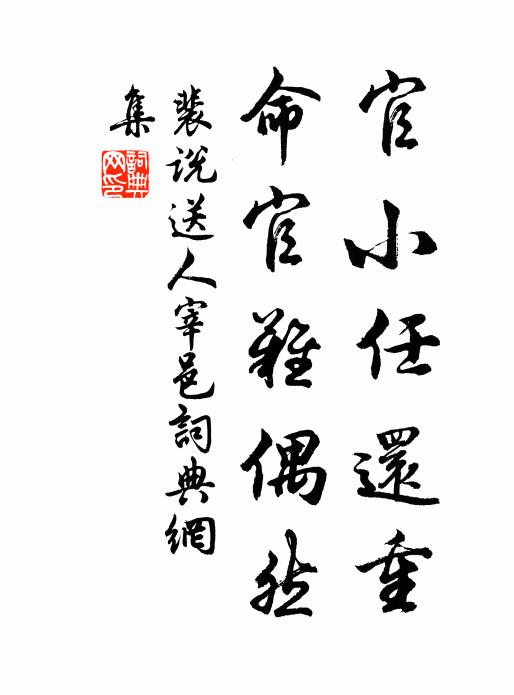 官小任還重
命官難偶然
裴说送人宰邑詞典網
集
詞典
网印